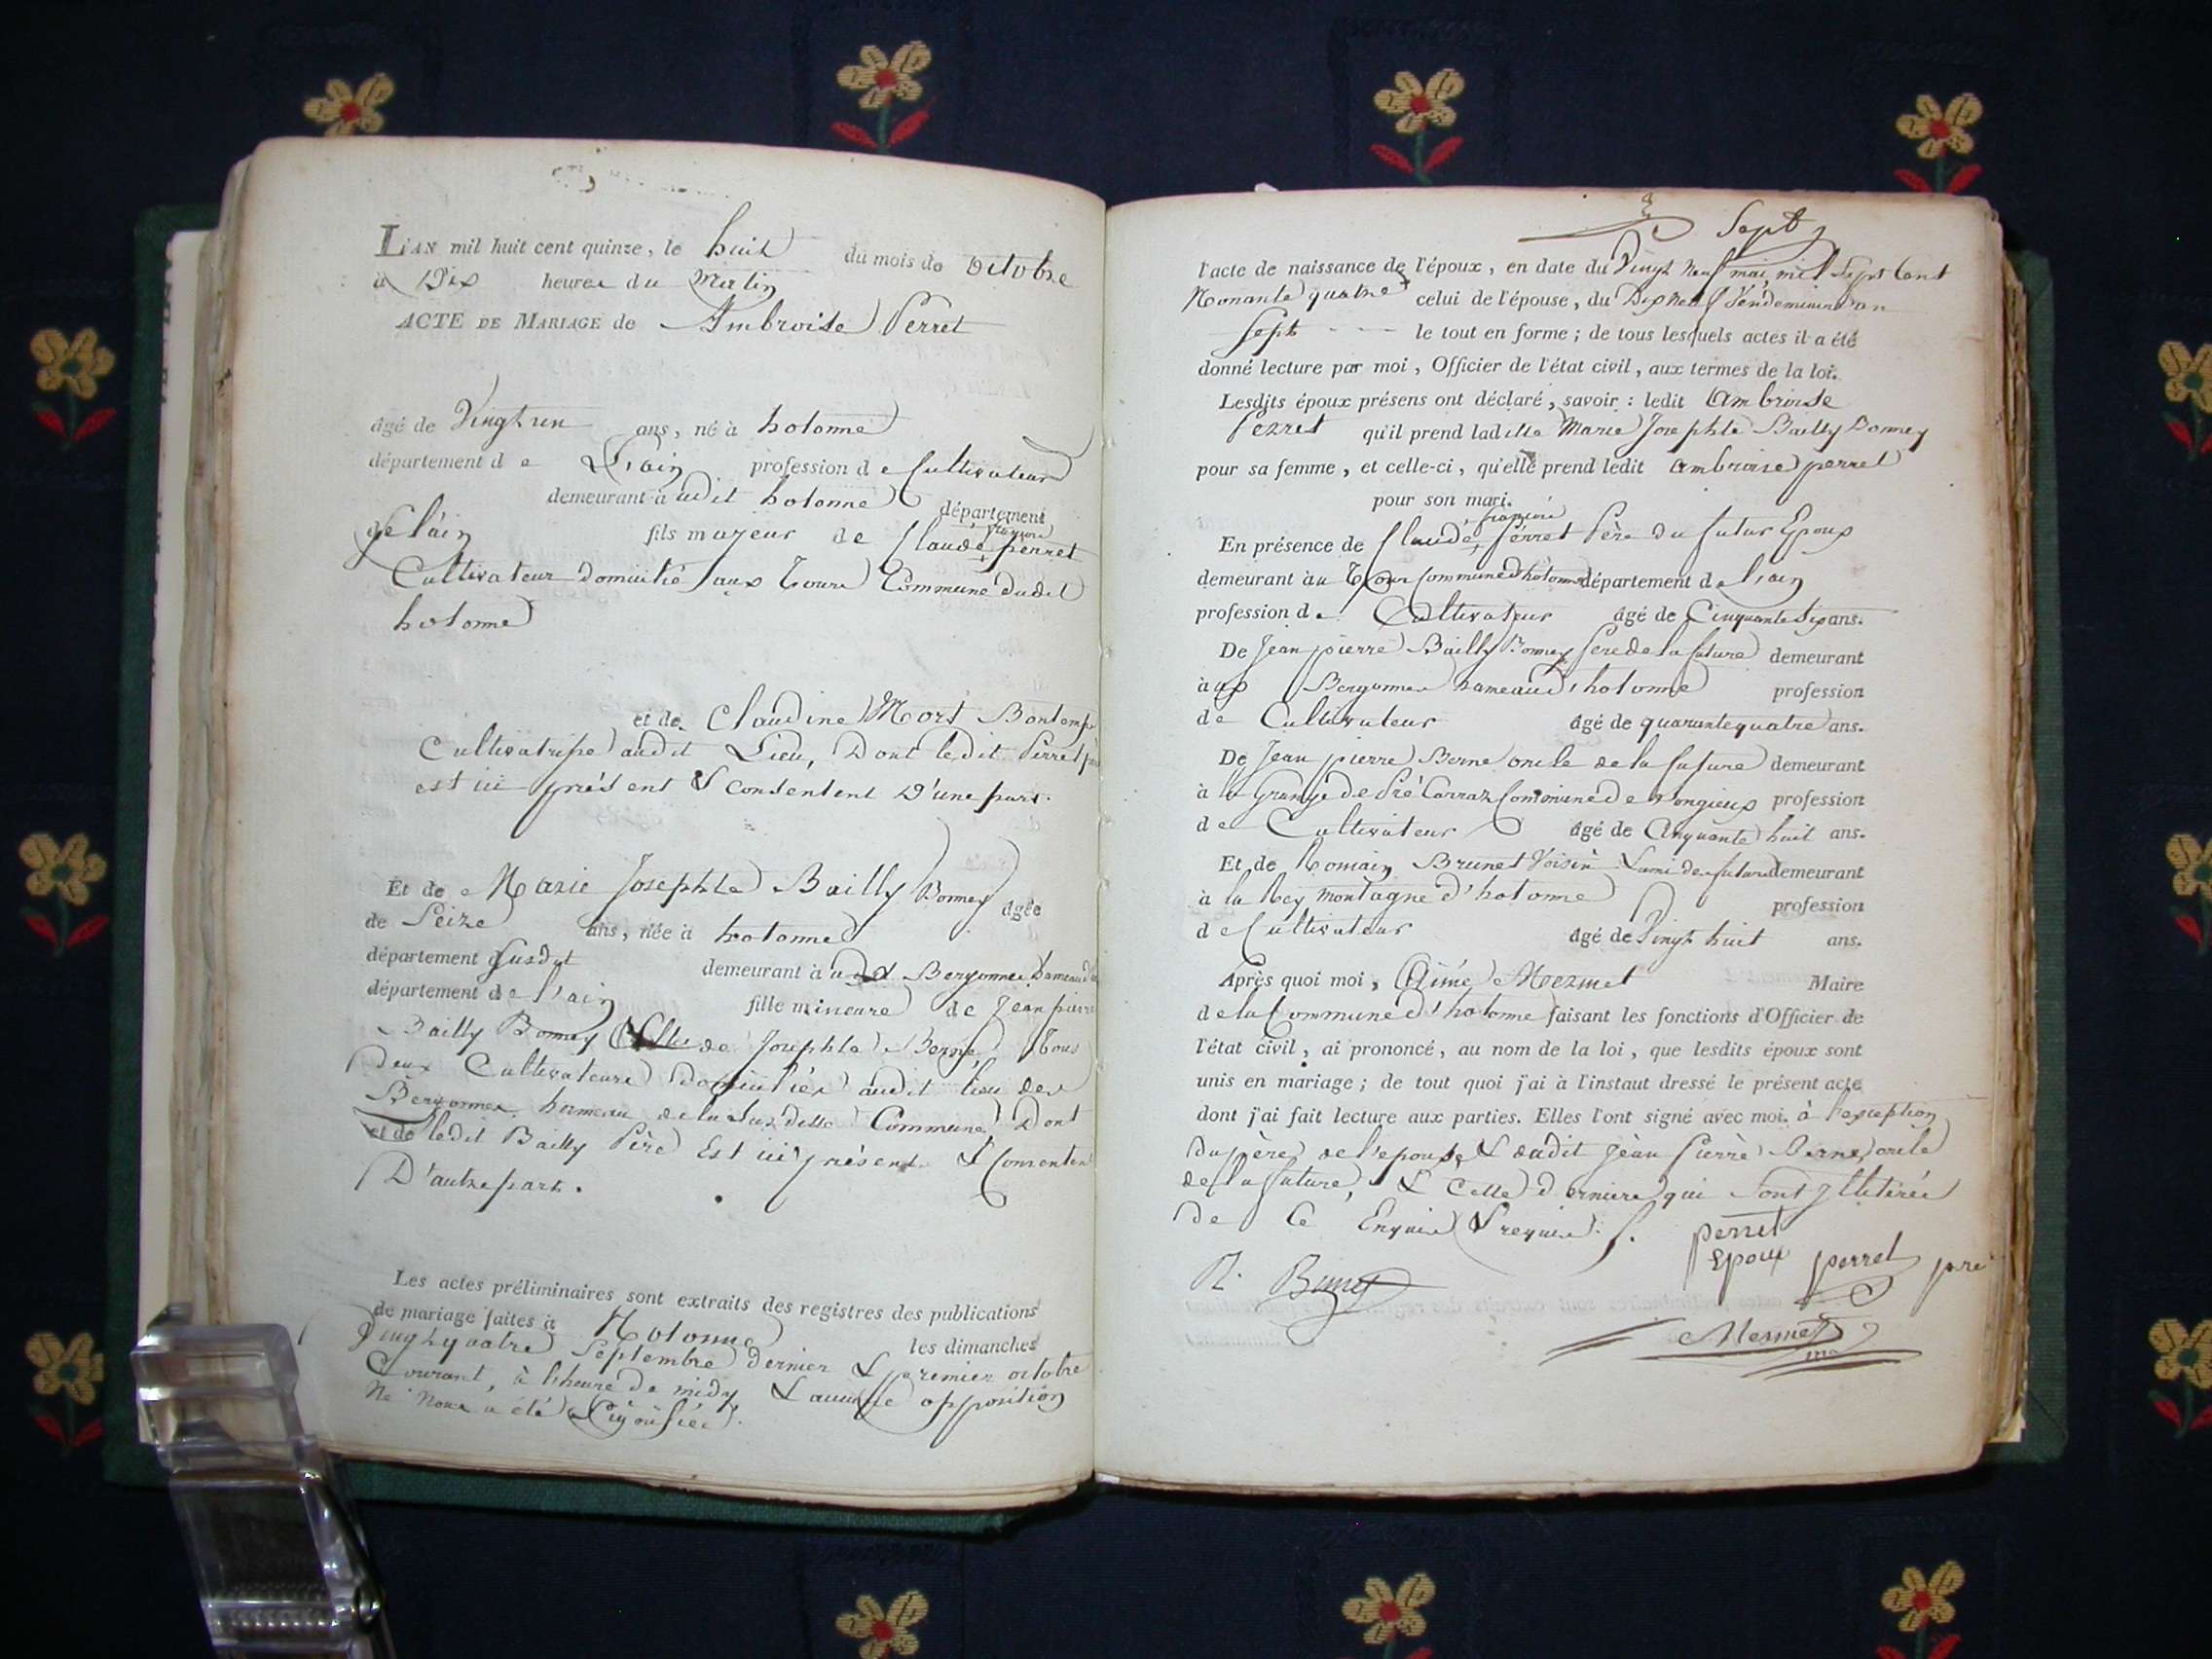 L'AN mil huit cent quinze, le huit du mois de Octobre
à Dix heures du Matin
ACTE DE MARIAGE de Ambroise Perret
âgé de Vingt un ans, né à hotonne
département de L'ain profession de Cultivateur
demeurant à udit hotonne département
de l'ain fils majeur de Claude françois perret
Cultivateur domicilié aux Cours Commune dudit
hotonne
et de Claudine Mort Bontemps
Cultivatrise audit Lieu, Dont ledit Perret père
est ici présent & consentent D'une part.
Et de Marie Josephte Bailly Bonney âgée
de Seize ans, née à hotonne
département susdit demeurant à Bergonnes hameau
département de l'ain fille mineure de Jean pierre
Bailly Bonney & de Josephte Berne, Tous
Deux Cultivateurs Domiciliés audit lieu des
Bergonnes hameau de la susditte Commune Dont
et de ledit Bailly Père Est ici présent & Consentent
D'autre part.
Les actes préliminaires sont extraits des registres des publications
de mariage faites à Hotonne les dimanches
Vingt quatre Septembre dernier & premier octobre
Courant, à l'heure de midy & aucune opposition
Ne Nous a été Signifiée.
Sept
l'acte de naissance de l'époux, en date du Vingt Neuf mai, mil Sept Cent
Nonante quatre celui de l'épouse, du Dix Neuf Vendemiaire an
Sept le tout en forme ; de tous lesquels actes il a été
donné lecture par moi, Officier de l'état civil, aux termes de la loi.
Lesdits époux présens ont déclaré, savoir : ledit Ambroise
Perret qu'il prend ladite Marie Josephte Bailly Bonney
pour sa femme, et celle-ci, qu'elle prend ledit ambroise perret
pour son mari.
En présence de Claude françois Perret Père du futur Epoux
demeurant à au Cour Commune d'hotonne département de l'ain
profession de Cultivateur âgé de Cinquante Six ans.
De Jean pierre Bailly Bonney Père de la future demeurant
à aux Bergonnes hameau d'hotonne profession
de Cultivateur âgé de quarante quatre ans.
De Jean pierre Berne oncle de la future demeurant
à la Grange de Pré Carraz Commune de Songieux profession
de Cultivateur âgé de Cinquante huit ans.
Et de Romain Brunet Voisin & ami des futurs demeurant
à la Rey montagne d'hotonne profession
de Cultivateur âgé de Vingt huit ans.
Après quoi moi, Aimé Mermet Maire
de la Commune d'hotonne faisant les fonctions d'Officier de
l'état civil, ai prononcé, au nom de la loi, que lesdits époux sont
unis en mariage ; de tout quoi j'ai à l'instaut dressé le présent acte
dont j'ai fait lecture aux parties. Elles l'ont signé avec moi. à l'exception
du père de l'epouse & dudit Jean Pierre Berne oncle
de la future, & Cette derniere qui Sont Illitérés
De Ce Enquis & requis.
perret
Epoux perret père
R. Brunet
Mermet